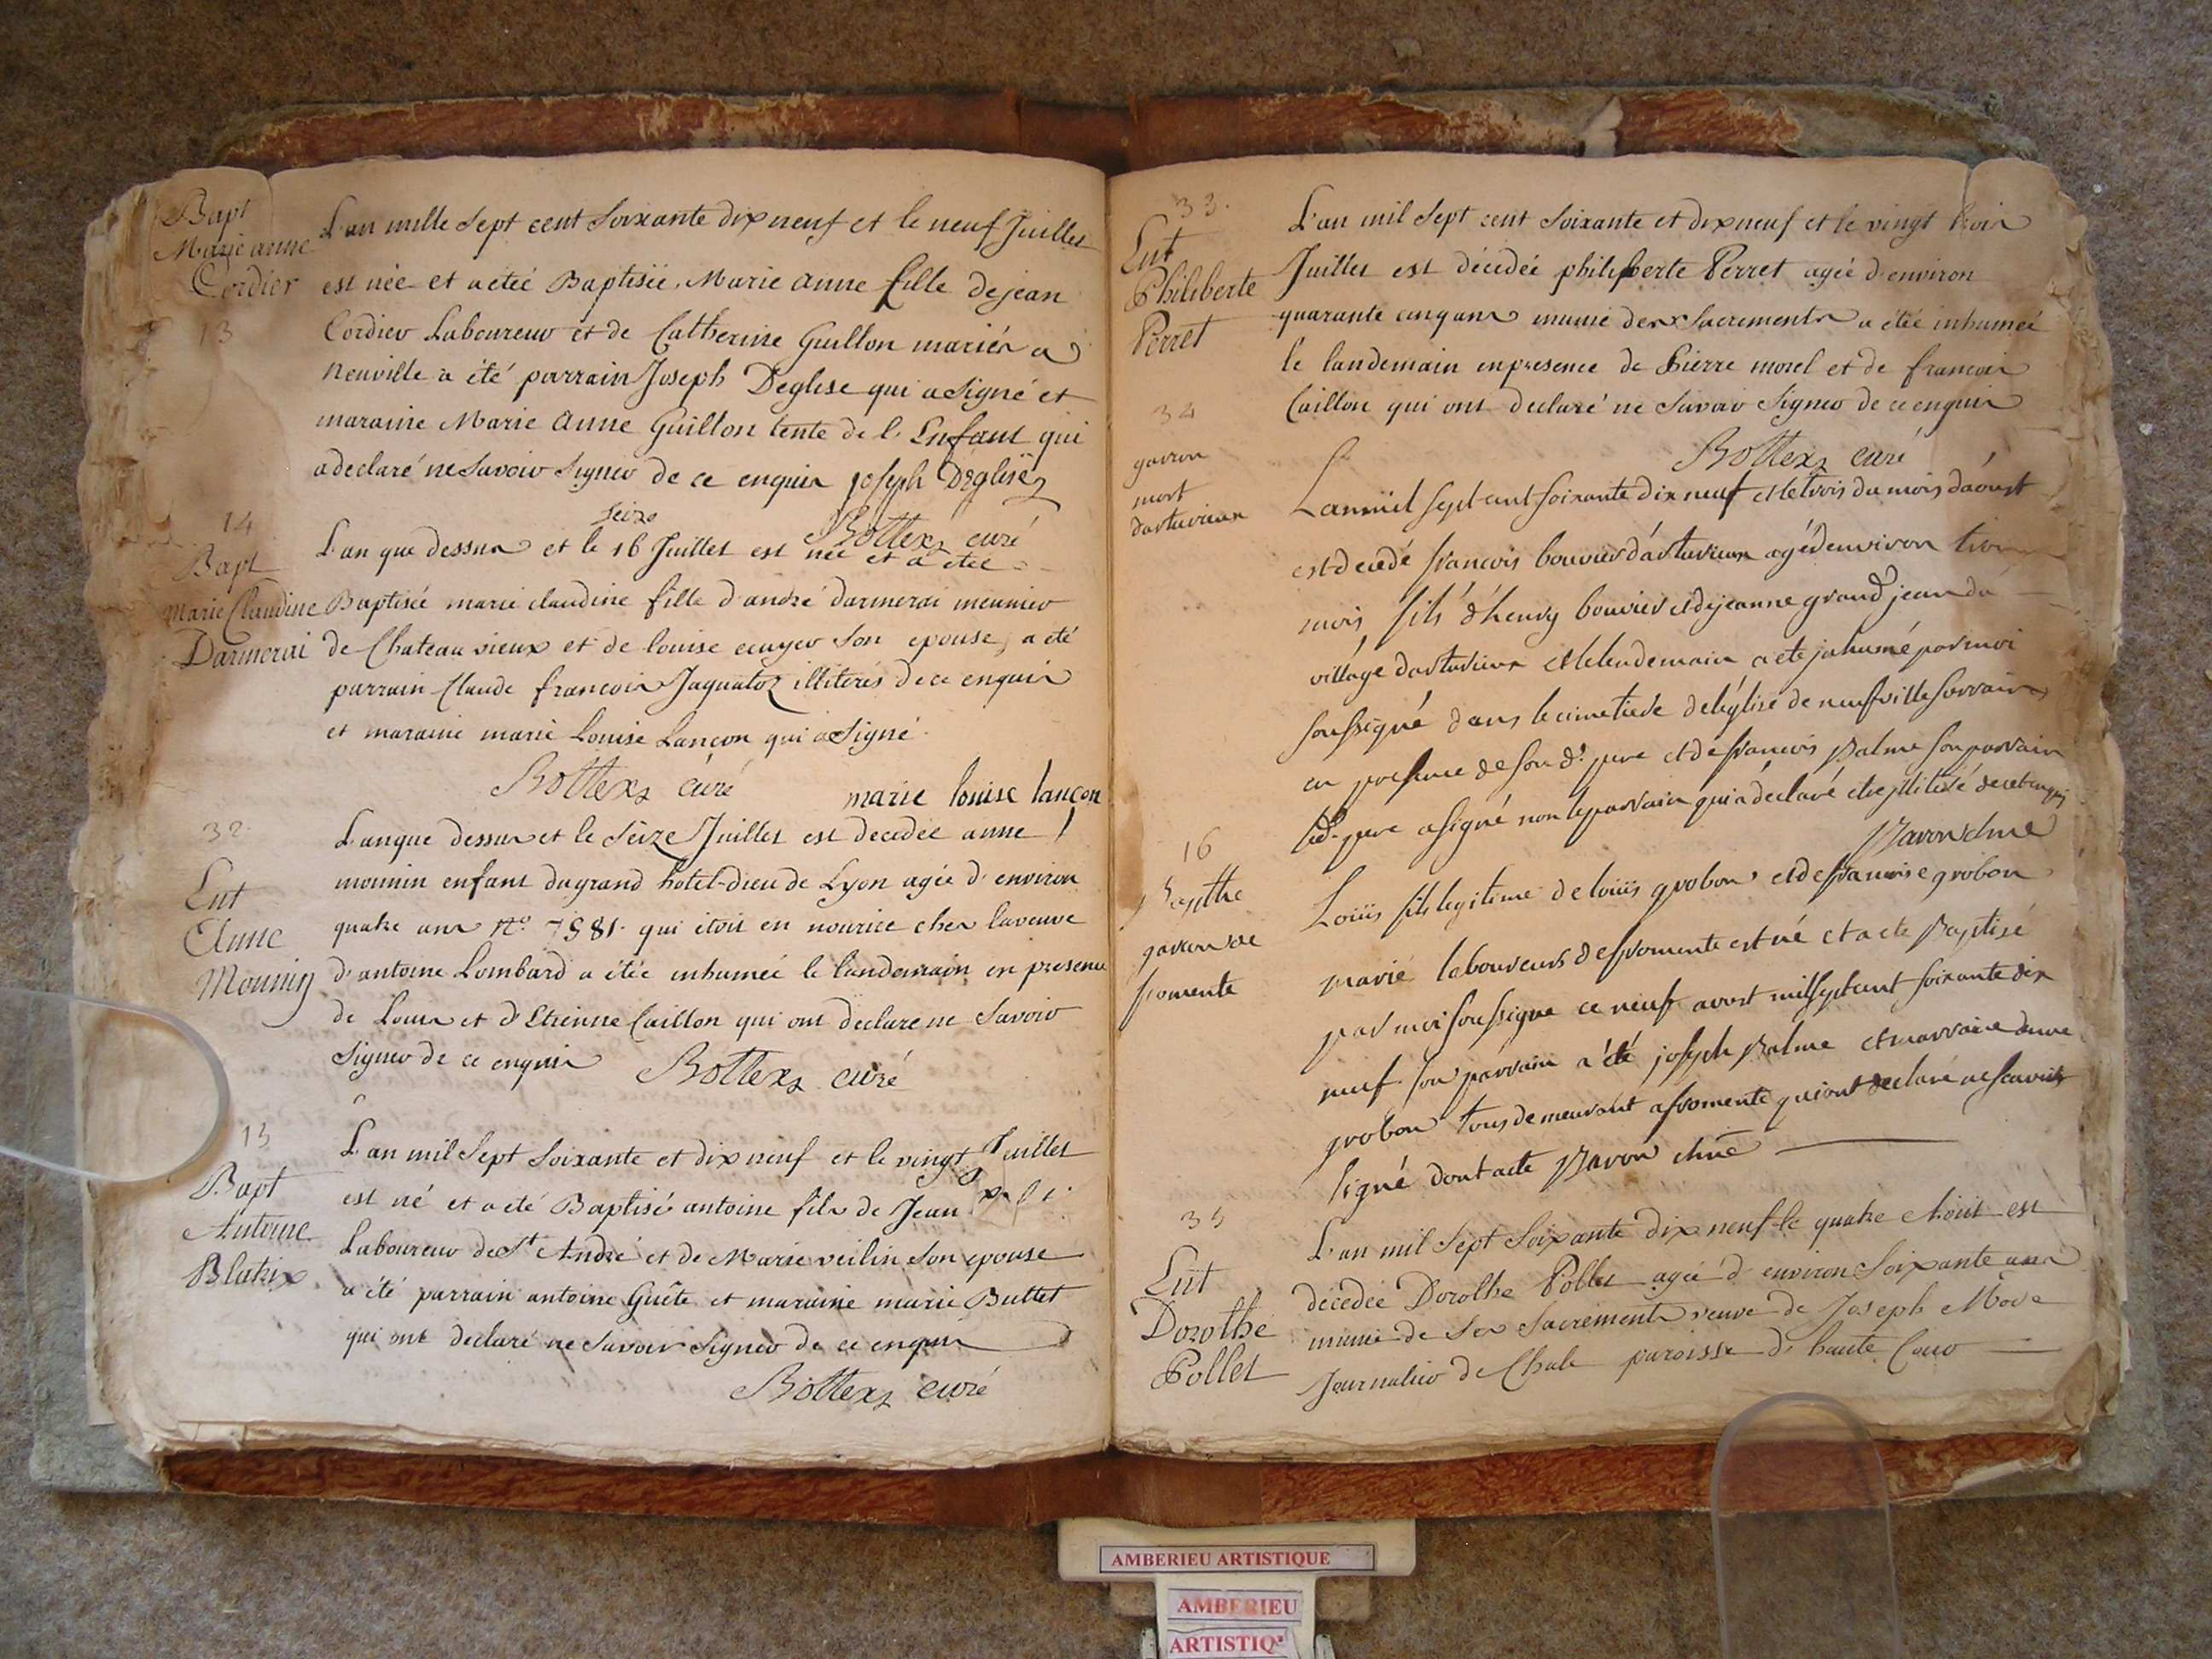 Bapt
Marie anne
Cordier
13
L'an mille Sept cent Soixante dix neuf et le neuf Juillet
est née et a etée Baptisée, Marie Anne fille de jean
Cordier Laboureur et de Catherine Guillon mariés a
Neuville a été parrain Joseph Deglise qui a Signé et
maraine Marie Anne Guillon tente de l'Enfant qui
a declaré ne Savoir Signer de ce enquis joseph Déglise
Bottex curé
14
Bapt
Marie Claudine
Darmerai
seize
L'an que dessus et le 16 Juillet est née et a etée
Baptisée marie claudine fille d'andré darmerai meunier
de Chateau vieux et de louise ecuyer Son epouse, a été
parrain Claude francois Jaquatoz illiterés de ce enquis
et maraine marie Louise Lançon qui a Signé
Bottex curé marie louise lançon
32
Ent
Anne
Mounin
L'an que dessus et le Seize Juillet est decedée anne
mounin enfant du grand hotel-dieu de Lyon agée d'environ
quatre ans N° 7881 qui étoit en nourice ches la veuve
d'antoine Lombard a étée inhumée le landemain en presence
de Louis et d'Etienne Caillon qui ont declare ne Savoir
Signer de ce enquis Bottex curé
15
Bapt
Antoine
Blatrix
L'an mil Sept Soixante et dix neuf et le vingt Juillet
est né et a eté Baptisé antoine fils de Jean
Laboureur de St André et de Marie veilin Son epouse
a été parrain antoine Guête et maraine marie Buttet
qui ont declaré ne Savoir Signer de ce enquis
Bottex curé
33
Ent
Philiberte
Perret
L'an mil Sept cent Soixante et dix neuf et le vingt trois
Juillet est décedée philiberte Perret agée d'environ
quarante cinq ans munie des Sacrements a étée inhumée
le landemain en presence de Pierre morel et de francois
Caillon qui ont declaré ne Savoir Signer de ce enquis
Bottex curé
34
garçon
mort
L'an mil sept cent soixante dix neuf et le trois du mois d'aoust
est decedé françois bouvier agé d'environ trois
mois fils d'henry bouvier et de jeanne grand jean du
village et le lendemain a eté inhumé par moi
soussigné dans le cimetiere de l'église de neufville
en presence de son dt pere et de françois palme son parrain
led. pere a signé non le parrain qui a déclaré etre illiteré de ce enquis
16
Bapthe
garçon de
fromente
Loüis fils legitime de loüis grobon et de françoise grobon
marié laboureurs de fromente est né et a ete Baptisé
par moi soussigné ce neuf aoust mil sept cent soixante dix
neuf son parrain a été joseph palme et marraine
grobon tous demeurant a fromente qui ont declaré ne scavoir
signé dont acte
35
Ent
Dorothé
Pollet
L'an mil Sept Soixante dix neuf le quatre Aout est
décedée Dorothe Pollet agée d'environ Soixante ans
munie de Ses Sacrements veuve de Joseph
Journalier de Chale paroisse d'haute Cour
AMBERIEU ARTISTIQUE
AMBERIEU
ARTISTIQ